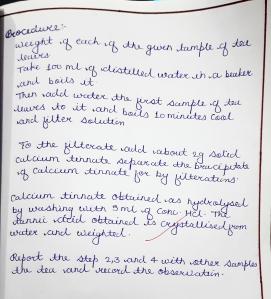 Procedure:-
weight of each of the given sample of tea
leaves
Take 100 ml of distilled water in a beaker
and boils it
Then add water the first sample of tea
leaves to it and boils 10 minutes Cool
and filter solution
To the filterate add about 2g solid
calcium tinnate separate the
of calcium tinnate for by filterations.
Calcium tinnate obtained as hydralysed
by washing with 5 ml of conc. HCl. The
tannic acid obtained is crystallised from
water and weighted.
Report the step 2,3 and 4 with other samples
the tea and record the observation.